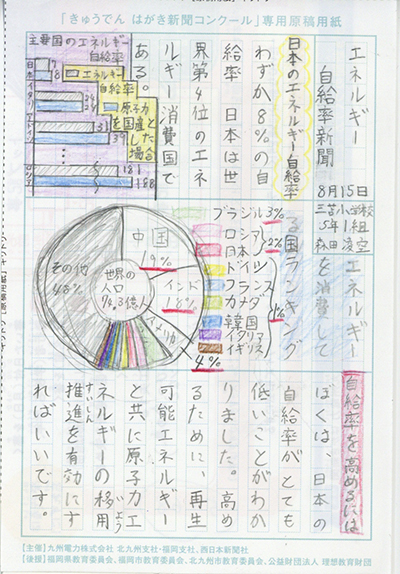 「きゅうでん はがき新聞コンクール」専用原稿用紙
エネルギー
自給率新聞
8月15日
三苫小学校
5年1組
森田
日本のエネルギー自給率
わずか8%の自
給率 日本は世
界第4位のエネ
ルギー消費国で
ある。
主要国のエネルギー
自給率
エネルギー
自給率
原子力
を国産
とした
場合
日本
7
8
イタリア
ドイツ
31
39
ロシア
181
188
エネルギー
を消費して
る国ランキング
ブラジル 3%
ロシア
日本
2%
ドイツ
フランス
カナダ
韓国
イギリス
イタリア
1%
中国
19%
インド
18%
アメリカ
4%
その他
48%
世界の
人口
74.3億人
自給率を高めるには
ぼくは、日本の
自給率がとても
低いことがわか
りました。高め
るために、再生
可能エネルギー
と共に原子力エ
ネルギーの移用
いよう
推進を有効にす
すいしん
ればいいです。
【主催】九州電力株式会社 北九州支社・福岡支社、西日本新聞社
【後援】福岡県教育委員会、福岡市教育委員会、北九州市教育委員会、公益財団法人 理想教育財団